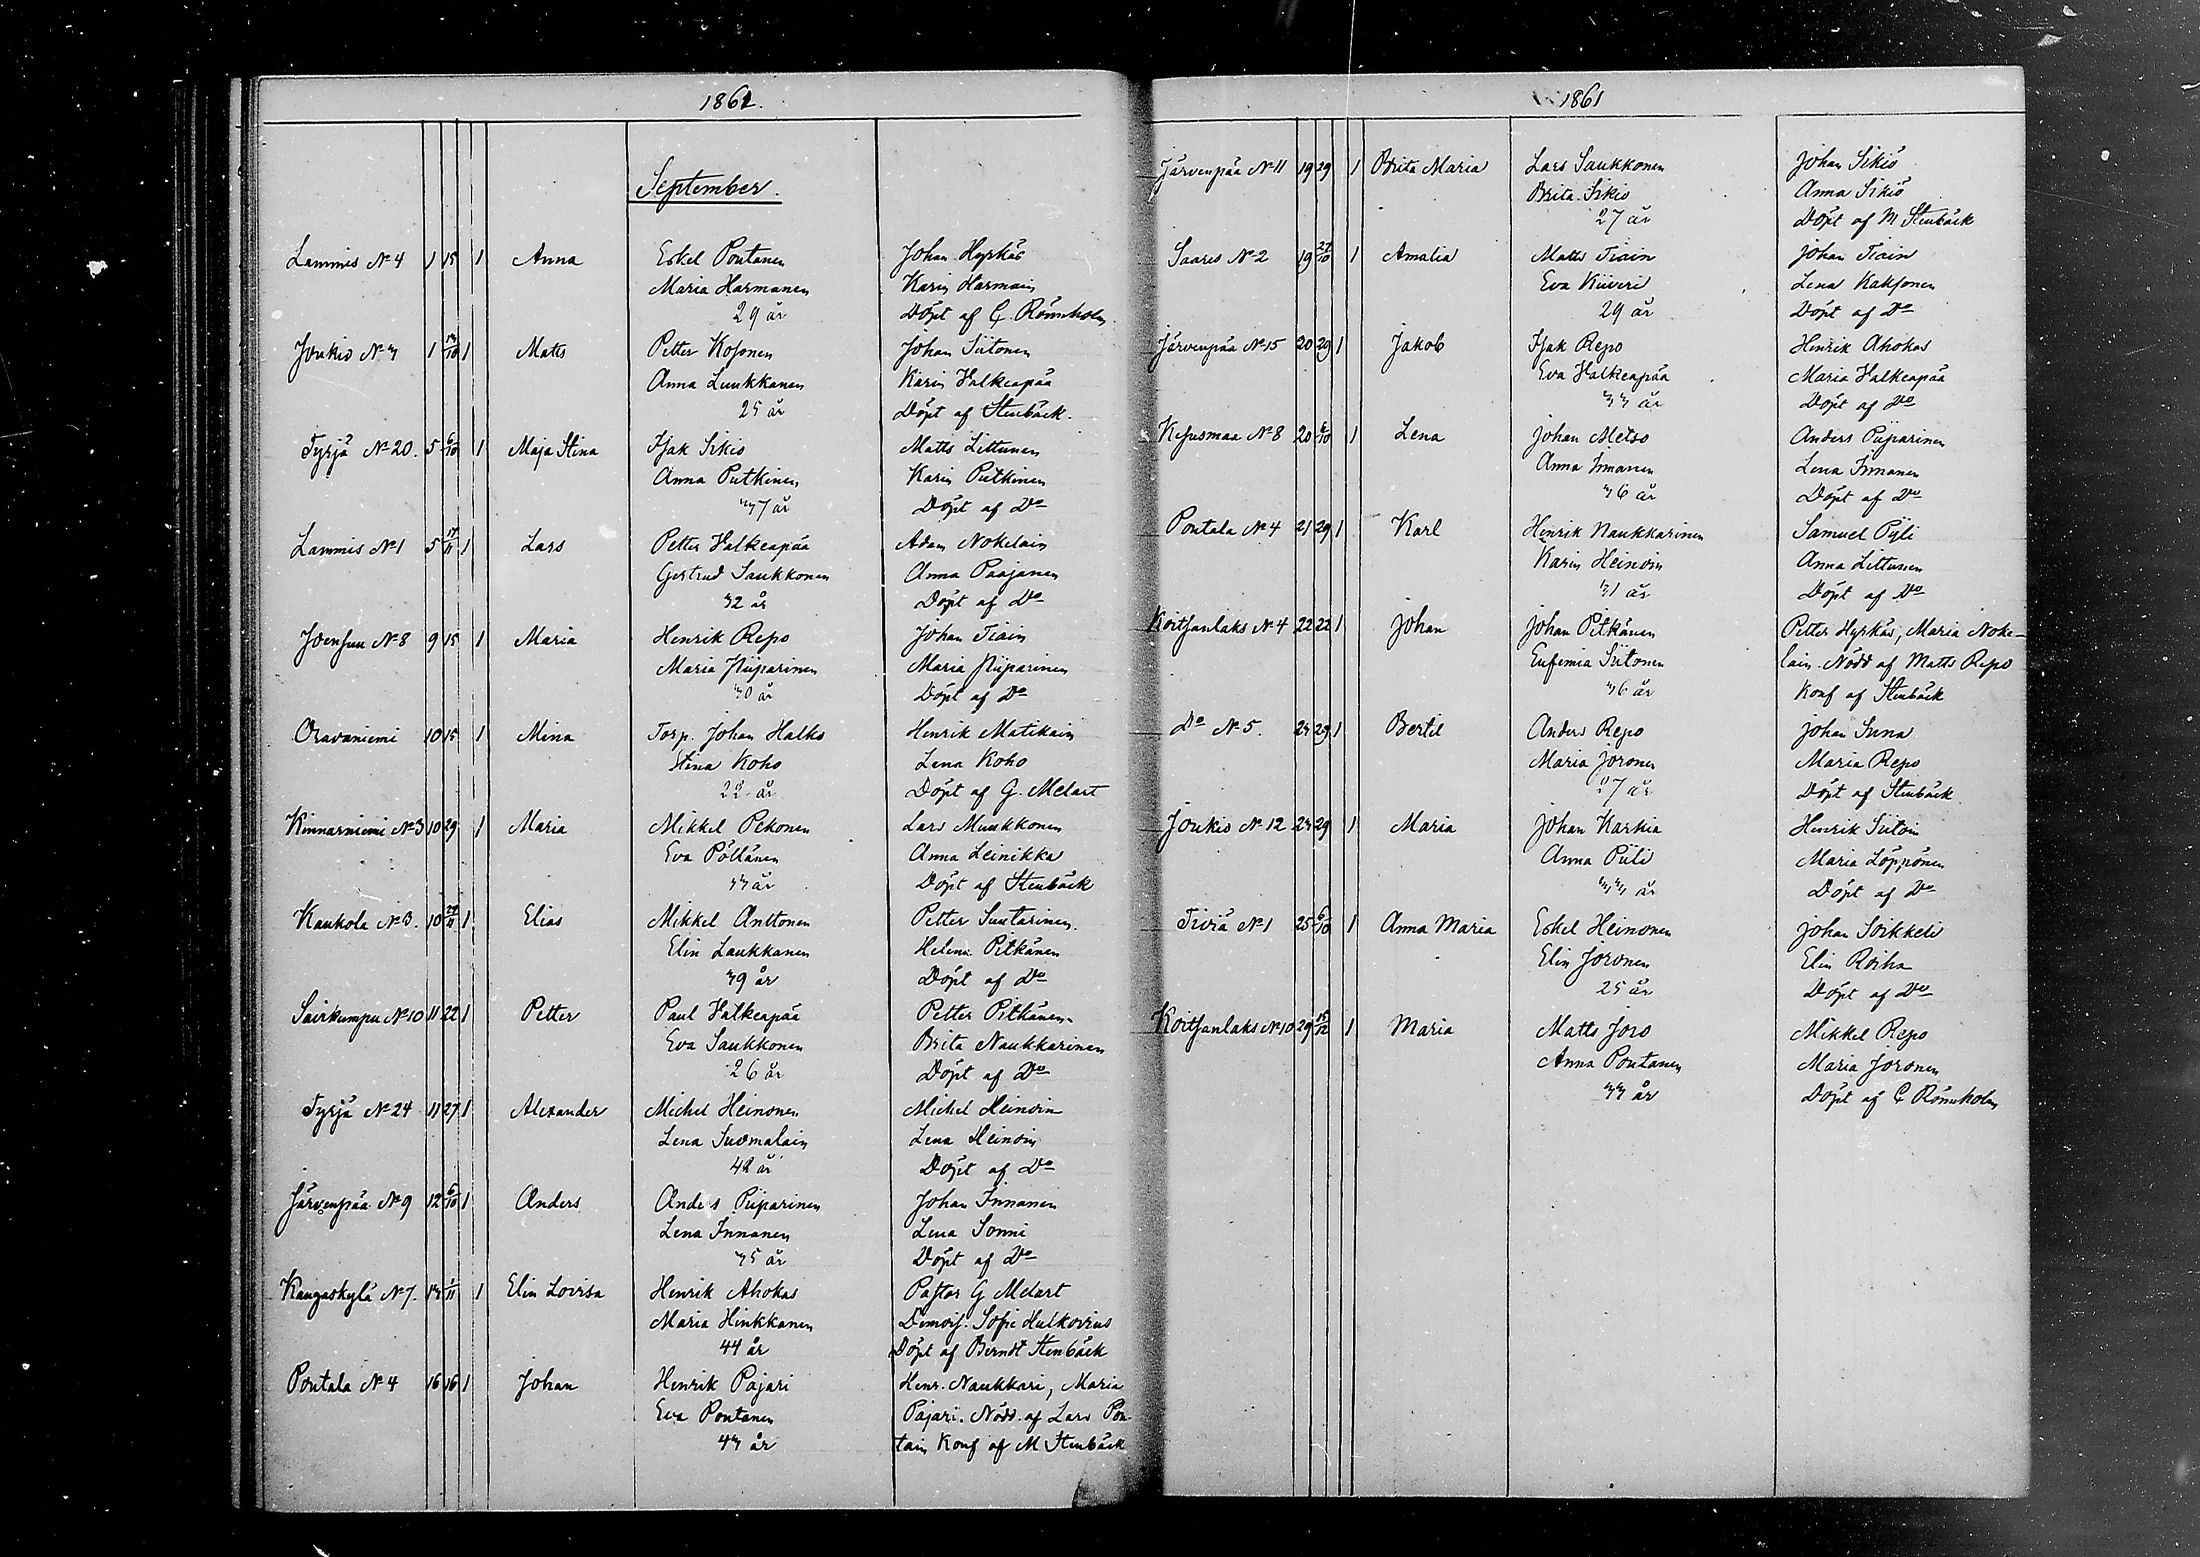 1861.
September.
Lammis № 4 1 15 1 Anna Eskel Pontanen Johan Hyrkäs
Maria Harmanen Karin Harmain
29 år Döpt af C. Rönnholm
Joukio № 3 1 13/10 1 Matts Petter Kosonen Johan Siitonen
Anna Luukkanen Karin Halkeapää
25 år Döpt af Stenbäck.
Tyrjä № 20. 5 6/10 1 Maja Stina Isak Sikiö Matts Littunen
Anna Putkinen Karin Putkinen
37 år Döpt af Do
Lammis № 1 5 17/11 1 Lars Petter Halkeapää Adam Nokelain
Gertrud Saukkonen Anna Paajanen
32 år Döpt af Do
Joensuu № 8 9 15 1 Maria Henrik Repo Johan Tiain
Maria Piiparinen Maria Piiparinen
30 år Döpt af Do
Oravaniemi 10 15 1 Mina Torp. Johan Halko Henrik Matikain
Stina Koho Lena Koho
22 år Döpt af G. Melart
Kinnarniemi № 3 10 29 1 Maria Mikkel Pekonen Lars Muukkonen
Eva Pöllänen Anna Leinikka
33 år Döpt af Stenbäck
Kaukola № 3. 10 1 Elias Mikkel Anttonen Petter Suutarinen.
Elin Laukkanen Helena Pitkänen
39 år Döpt af Do
Sairkumpu № 10 11 22 1 Petter Paul Halkeapää Petter Pitkänen
Eva Saukkonen Brita Naukkarinen
26 år Döpt af Do
Tyrjä № 24 11 27 1 Alexander Michel Heinonen Michel Heinoin
Lena Suomalain Lena Heinoin
42 år Döpt af Do
Järvenpää № 9 12 6/10 1 Anders Anders Piiparinen Johan Innanen
Lena Innanen Lena Sonni
35 år Döpt af Do
Kangaskylä № 7. 13 1/11 1 Elin Lovisa Henrik Ahokas Pastor G Melart
Maria Hinkkanen Demois. Sofie Hulkovius
44 år Döpt af Berndt Stenbäck
Pontala № 4 16 16 1 Johan Henrik Pajari Henr. Naukkari, Maria
Eva Pontanen Pajari. Nödd. af Lars Pon-
43 år tain Konf af M Stenbäck
1861
Järvenpää № 11 19 29 1 Brita Maria Lars Saukkonen Johan Sikiö
Brita Sikiö Anna Sikiö
27 år Döpt af M Stenbäck
Saares № 2 19 27/10 1 Amalia Matts Tiain Johan Tiain
Eva Kiiveri Lena Kaksonen
29 år Döpt af Do
Järvenpää № 15 20 29 1 Jakob Isak Repo Henrik Ahokas
Eva Halkeapää Maria Halkeapää
33 år Döpt af Do
Kesusmaa № 8 20 6/10 1 Lena Johan Metso Anders Piiparinen
Anna Innanen Lena Innanen
36 år Döpt af Do
Pontala № 4 21 29 1 Karl Henrik Naukkarinen Samuel Pyli
Karin Heinoin Anna Littunen
31 år Döpt af Do
Koitsanlaks № 4 22 22 1 Johan Johan Pitkänen Petter Hyrkäs, Maria Noke-
Eufemia Siitonen lain. Nödd af Matts Repo
36 år Konf af Stenbäck
Do № 5. 23 29 1 Bertil Anders Repo Johan Inna
Maria Joronen Maria Repo
27 år Döpt af Stenbäck
Joukio № 12 23 29 1 Maria Johan Karhia Henrik Siitoin
Anna Piili Maria Löppönen
33 år Döpt af Do
Tiviä № 1 25 6/10 1 Anna Maria Eskel Heinonen Johan Soikkeli
Elin Joronen Elin Roiha
25 år Döpt af Do
Koitsanlaks № 10 29 15/12 1 Maria Matts Joro Mikkel Repo
Anna Pontanen Maria Joronen
33 år Döpt af C Rönnholm